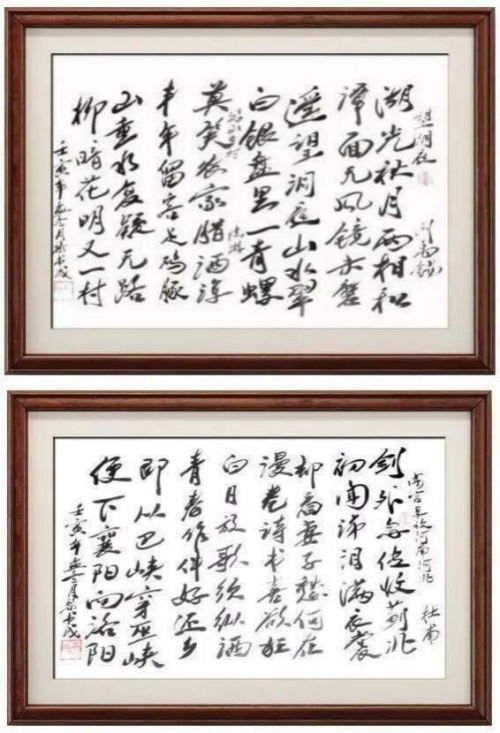 望洞庭
刘禹锡
湖光秋月两相和
潭面无风镜未磨
遥望洞庭山水翠
白银盘里一青螺
莫笑农家腊酒浑
丰年留客足鸡豚
山重水复疑无路
柳暗花明又一村
壬寅年 月
收河南河北
杜甫
剑外忽传收蓟北
初闻涕泪满衣裳
却看妻子愁何在
漫卷诗书喜欲狂
白日放歌须纵酒
青春作伴好还乡
即从巴峡穿巫峡
便下襄阳向洛阳
壬寅年 月